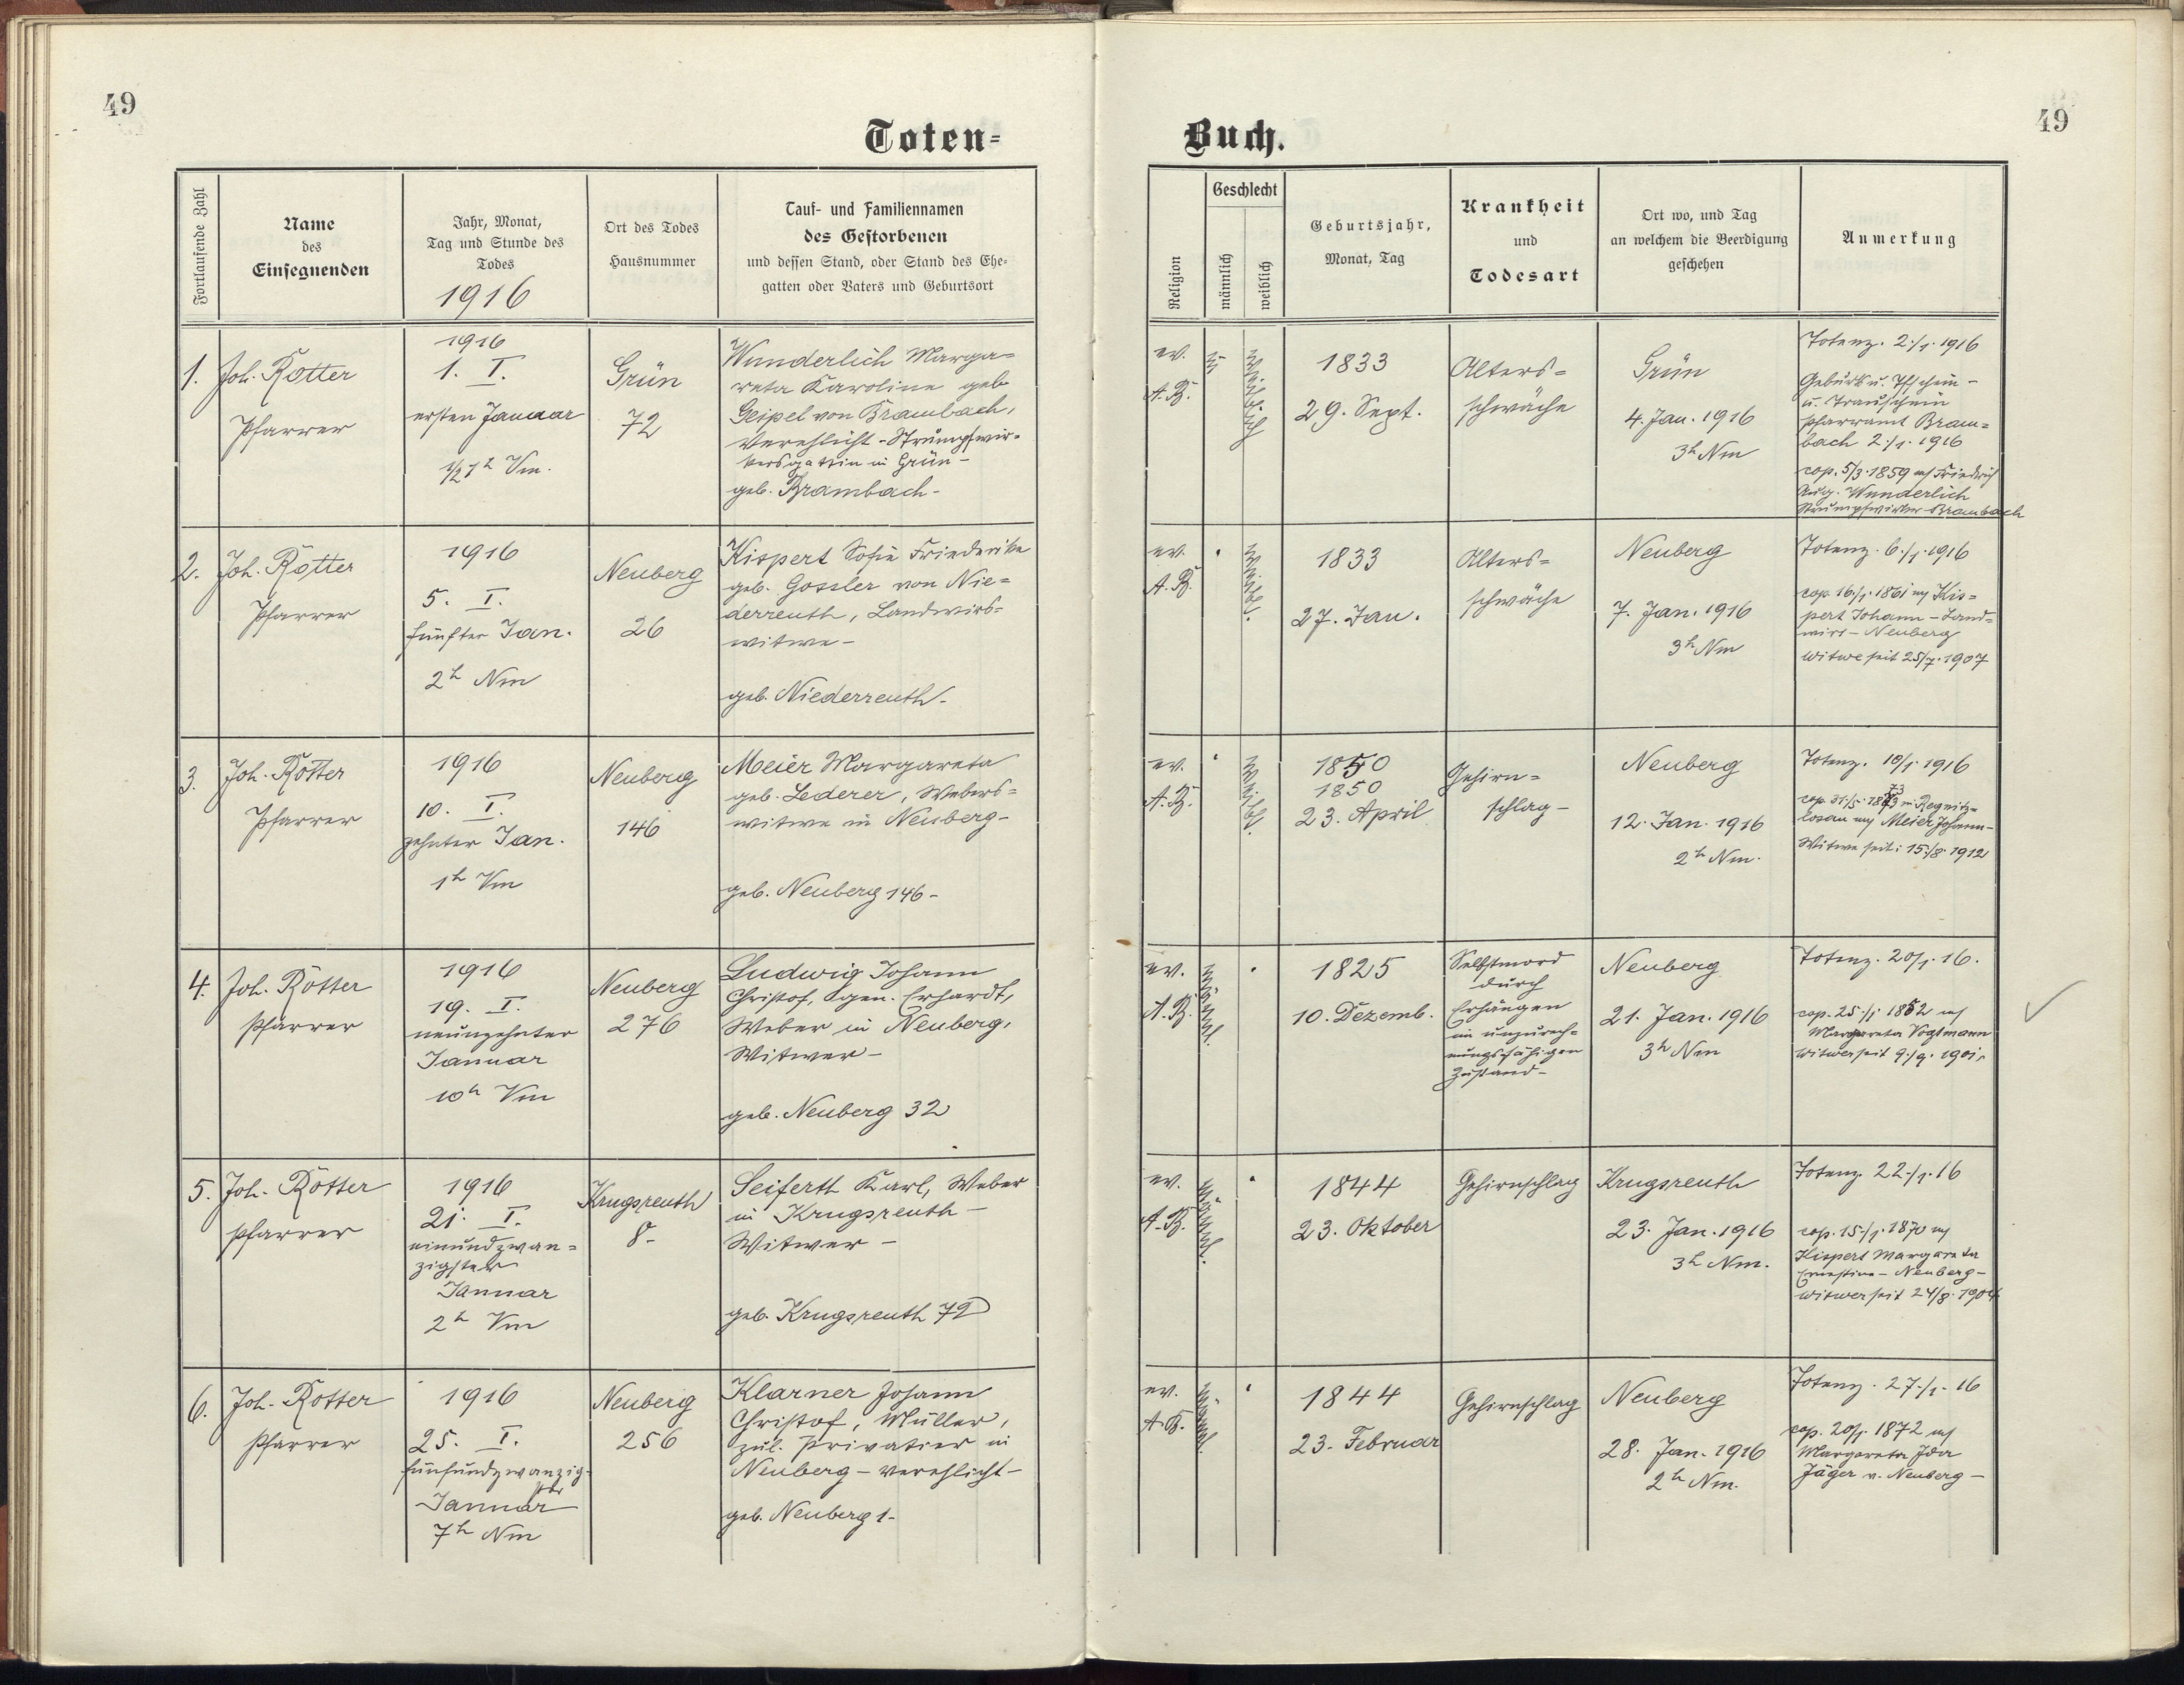 49
Toten-
Fortlaufende Zahl
Name
des
Einsegnenden
Jahr, Monat,
Tag und Stunde des
Todes
1916
Ort des Todes
Hausnummer
Tauf- und Familiennamen
des Gestorbenen
und dessen Stand, oder Stand des Ehe-
gatten oder Vaters und Geburtsort
1.
Joh. Rotter
Pfarrer
1916
1. I.
ersten Januar
1/2 1h Vm.
Grün
72
Wunderlich Marga-
reta Karoline geb
Geipel von Brambach,
Verehlicht - Strumpfwir-
kersgattin in Grün -
geb. Brambach -
2.
Joh. Rotter
Pfarrer
1916
5. I.
fünfter Jan.
2h Nm
Neuberg
26
Kispert Sofie Friederike
geb. Gossler von Nie-
derreuth, Landwirts-
witwe -
geb. Niederreuth -
3.
Joh. Rotter
Pfarrer
1916
10. I.
zehnter Jan.
1h Vm
Neuberg
146
Meier Margareta
geb. Lederer, Webers-
witwe in Neuberg -
geb. Neuberg 146 -
4.
Joh. Rotter
Pfarrer
1916
19. I.
neunzehnter
Januar
10h Vm
Neuberg
276
Ludwig Johann
Christof, gen. Erhardt,
Weber in Neuberg,
Witwer -
geb. Neuberg 32
5.
Joh. Rotter
Pfarrer
1916
21. I.
einundzwan-
zigster
Januar
2h Vm
Krugsreuth
8 -
Seiferth Karl, Weber
in Krugsreuth -
Witwer -
geb. Krugsreuth 72
6.
Joh. Rotter
Pfarrer
1916
25. I.
fünfundzwanzig-
ster
Januar
7h Nm
Neuberg
256
Klarner Johann
Christof, Müller,
zul. Privatier in
Neuberg - verehlicht -
geb. Neuberg 1 -
49
Buch.
Religion
Geschlecht
männlich
weiblich
Geburtsjahr,
Monat, Tag
Krankheit
und
Todesart
Ort wo, und Tag
an welchem die Beerdigung
geschehen
Anmerkung
ev.
A. B.
weiblich
1833
29. Sept.
Alters-
schwäche
Grün
4. Jan. 1916
3h Nm
Totenz. 2./1. 1916
Geburts u. Tfschein -
u. Trauschein
Pfarramt Bram-
bach 2./1. 1916
cop. 5/3. 1859 m/ Friedrich
Aug. Wunderlich
Strumpfwirker Brambach
ev.
A. B.
weibl.
1833
27. Jan.
Alters-
schwäche
Neuberg
7. Jan. 1916
3h Nm
Totenz. 6./1. 1916
cop. 16./1. 1861 m/ Kis-
pert Johann - Land-
wirt - Neuberg
Witwe seit 25/7. 1907
ev.
A. B.
weibl.
1850
1850
23. April
Gehirn-
schlag -
Neuberg
12. Jan. 1916
2h Nm.
Totenz. 10/1. 1916
cop. 31./5. 1873 in Regnitz-
losau m/ Meier Johann -
Witwe seit: 15./8. 1912
ev.
A. B.
männl.
1825
10. Dezemb.
Selbstmord
durch
Erhängen
im unzurech-
nungsfähigen
Zustand -
Neuberg
21. Jan. 1916
3h Nm
Totenz. 20/1. 16.
cop. 25./1. 1852 m/
Margareta Vogtmann
Witwer seit 9./9. 1901.
ev.
A. B.
männl.
1844
23. Oktober
Gehirnschlag
Krugsreuth
23. Jan. 1916
3h Nm.
Totenz. 22./1. 16
cop. 15./1. 1870 m/
Kispert Margareta
Ernestine - Neuberg -
Witwer seit 24/8. 1904
ev.
A. B.
männl.
1844
23. Februar
Gehirnschlag
Neuberg
28. Jan. 1916
2h Nm.
Totenz. 27./1. 16
cop. 20/1. 1872 m/
Margareta Ida
Jäger v. Neuberg -